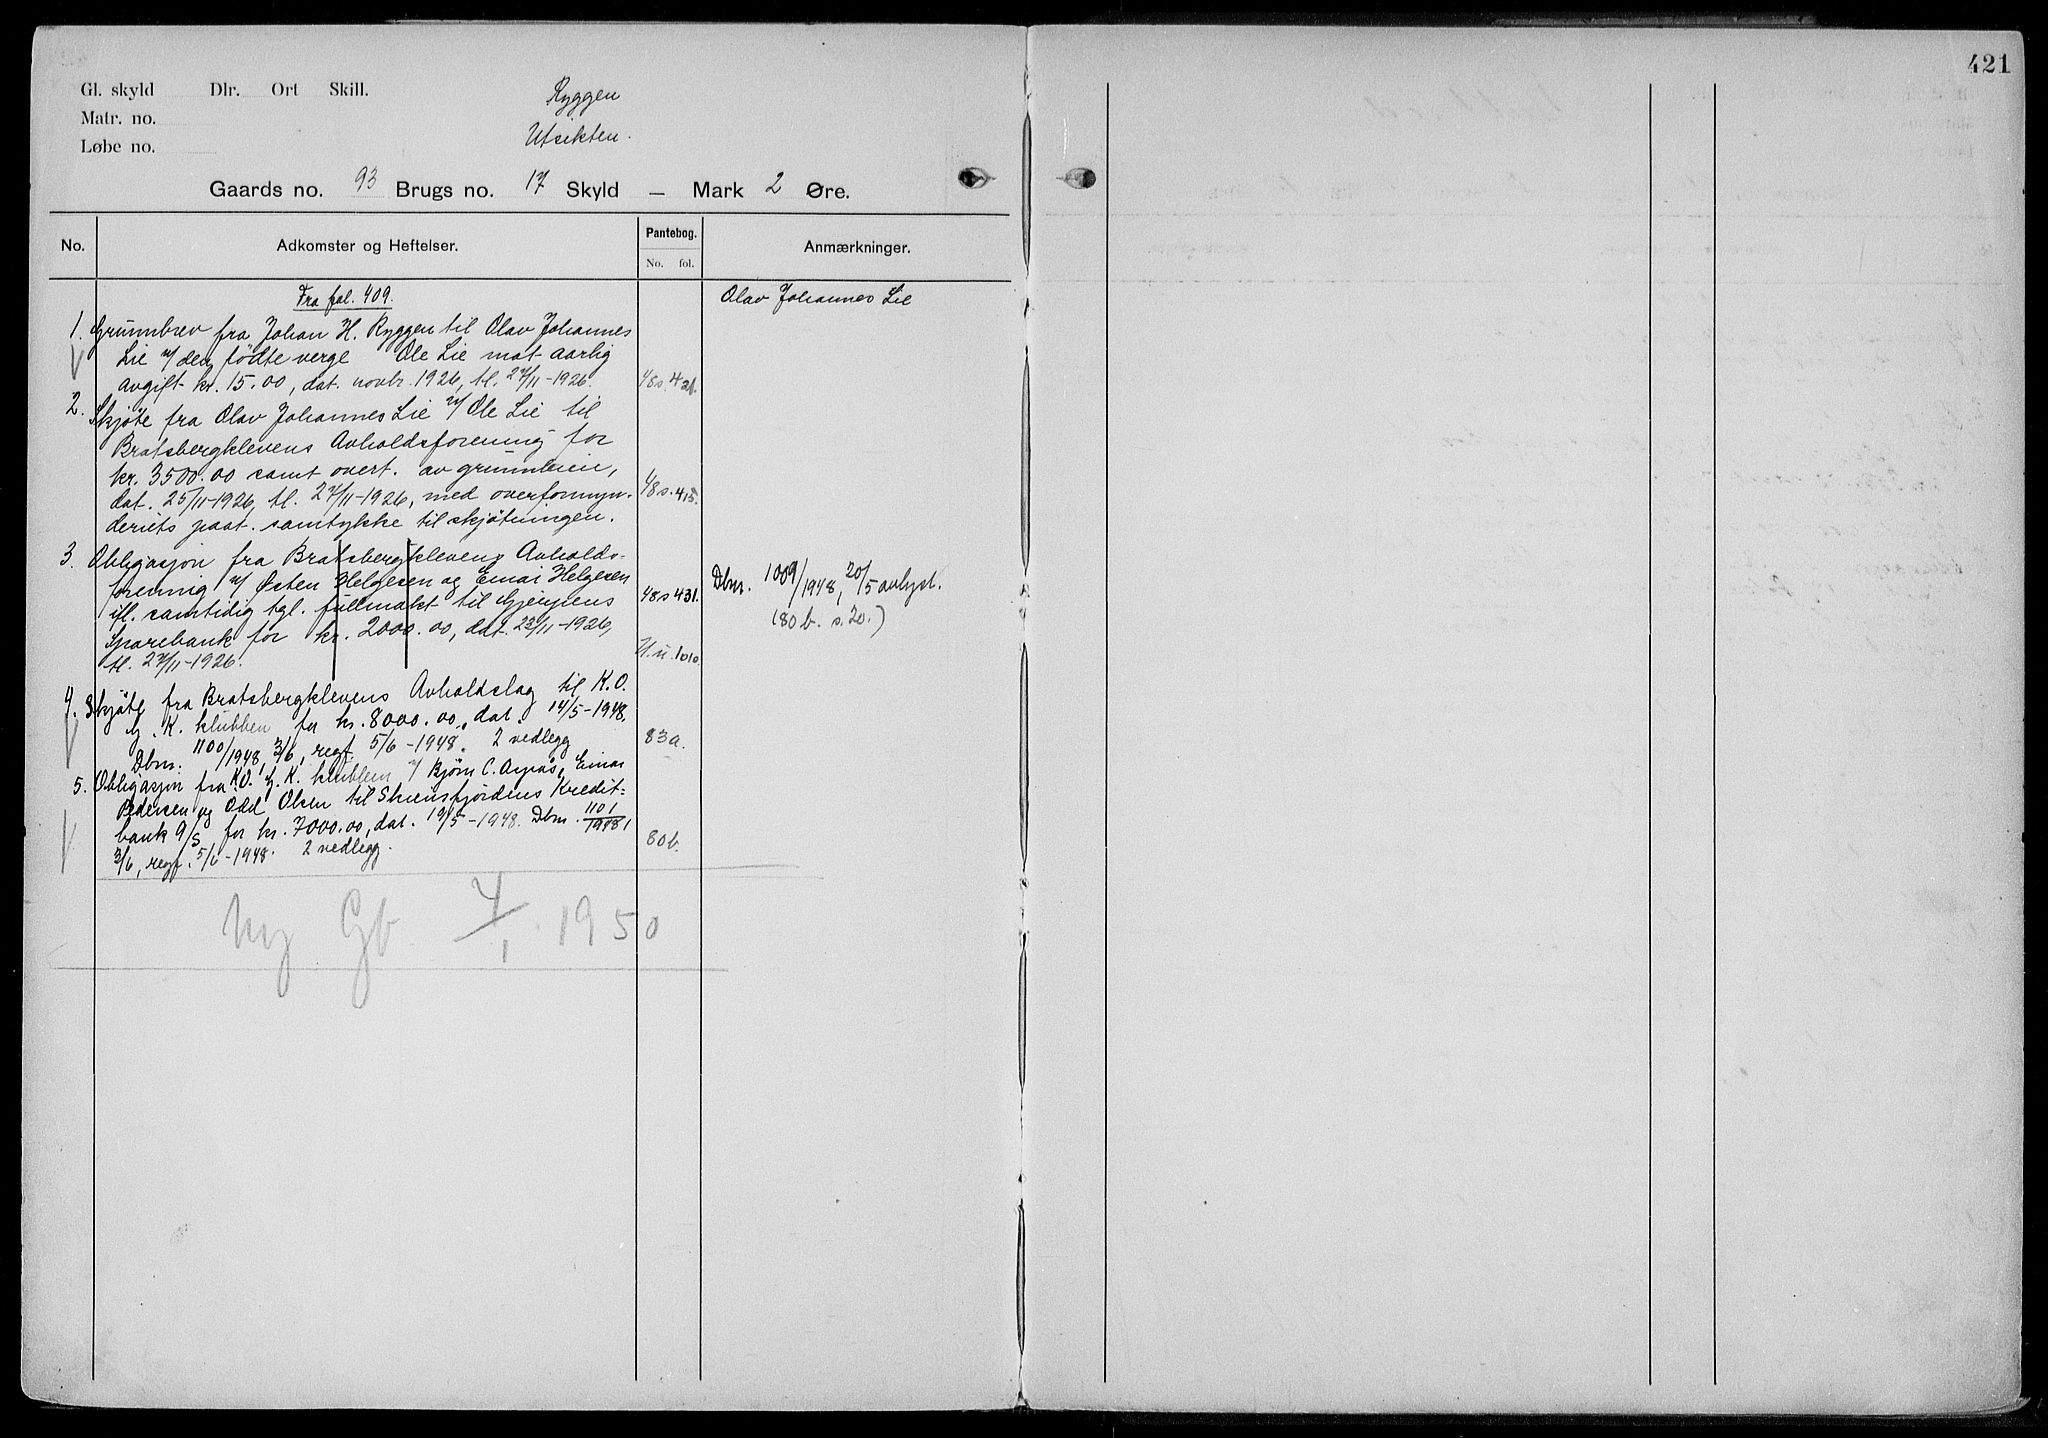 421
Gl. skyld Dlr. Ort Skill.
Matr. no.
Løbe no.
Ryggen
Utsikten.
Gaards no. 93 Brugs no. 17 Skyld — Mark 2 Øre.
No. Adkomster og Heftelser. Pantebog. No. fol. Anmærkninger.
Fra fol. 409. Olav Johannes Lie
1. Grunnbrev fra Johan H. Ryggen til Olav Johannes
Lie v/ den fødte verge Ole Lie mot aarlig
avgift kr. 15.00, dat. novbr. 1926, tl. 27/11-1926. 48 s. 421.
2. Skjöte fra Olav Johannes Lie v/ Ole Lie til
Bratsbergklevens Avholdsforening for
kr. 3500.00 samt overt. av grunnleien,
dat. 25/11-1926, tl. 27/11-1926, med overformyn- 48 s. 415.
deriets paat. samtykke til skjötningen.
3. Obligasjon fra Bratsbergklevens Avholds-
forening v/ Østen Helgesen og Einar Helgesen
ifl. samtidig tgl. fullmakt til Gjerpens 48 s 431.
Sparebank for kr. 2000.00, dat. 23/11-1926,
tl. 27/11-1926. H. u. 1010.
Dbnr. 1009/1948, 20/5 avlyst.
(80 b. s. 20.)
4. Skjöte fra Bratsbergklevens Avholdslag til K.O.
G. K. klubben for kr. 8000.00, dat. 14/5-1948.
Dbnr. 1100/1948, 3/6, regf. 5/6-1948. 2 vedlegg 83a.
5. Obligasjon fra K.O. G. K. klubben v/ Bjørn C. Einar
Pedersen og Odd Olsen til Skiensfjordens Kredit-
bank A/S for kr. 7000.00, dat. 19/5-1948. Dbnr. 1101/1948,
3/6, regf. 5/6-1948. 2 vedlegg. 80b.
Ny Gb 4/1 1950